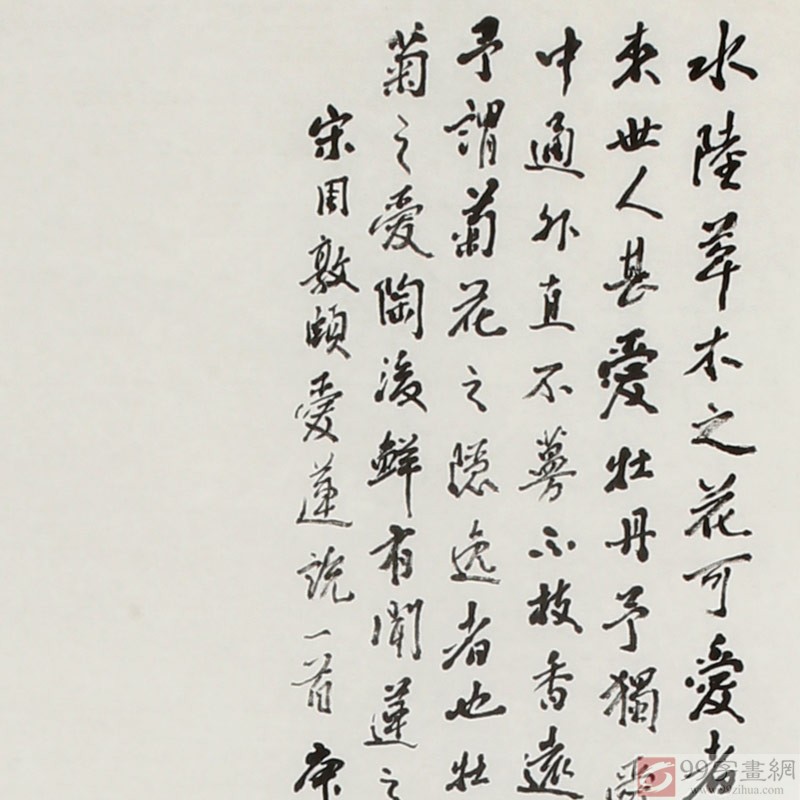 水陸草木之花可愛者
来世人甚愛牡丹予獨愛
中通外直不蔓不枝香遠
予謂菊花之隱逸者也牡
菊之愛陶後鮮有聞蓮之
宋周敦頤愛蓮說一首 庚
99字畫網
www.99zihua.com